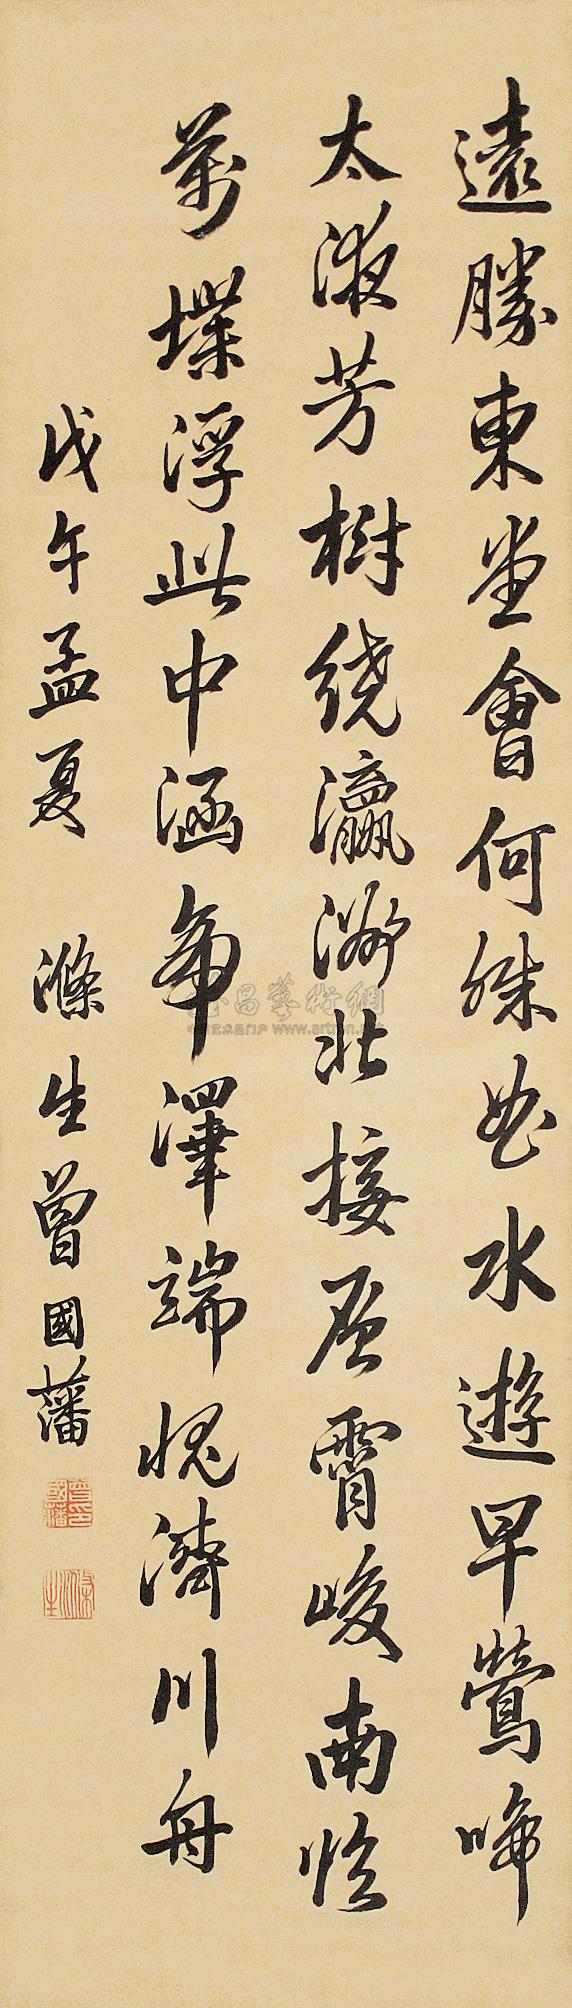 遠勝東堂會何殊曲水遊早鶯啼
太液芳樹繞瀛洲北接層霄峻南臨
萬堞浮此中涵帝澤端愧濟川舟
戊午孟夏 滌生曾國藩
曾國藩印
滌生
雅昌藝術網
中国艺术品门户 www.artron.net